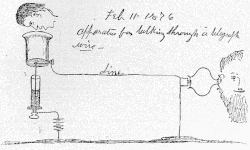 Feb. 11 1876
apparatus for talking through a telegraph
wire —
Line